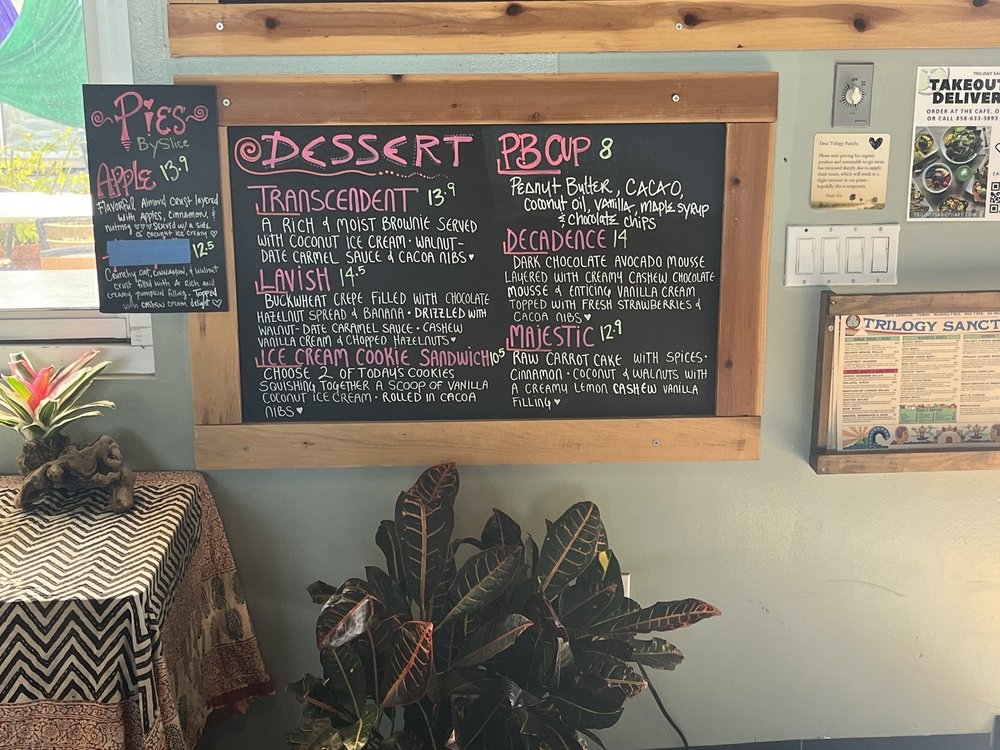 Pies
By Slice
APPLE 13.9
Flavorful Almond crust layered
with Apples, cinnamon, &
nutmeg ♡♡♡ served w/ a side
of coconut ice cream ♡
12.5
Crunchy oat, cinnamon, & walnut
crust filled with a rich and
creamy pumpkin filling. Topped
with cashew cream delight ♡
DESSERT
TRANSCENDENT 13.9
A RICH & MOIST BROWNIE SERVED
WITH COCONUT ICE CREAM • WALNUT-
DATE CARMEL SAUCE & CACAO NIBS ♥
LAVISH 14.5
BUCKWHEAT CREPE FILLED WITH CHOCOLATE
HAZELNUT SPREAD & BANANA • DRIZZLED WITH
WALNUT-DATE CARAMEL SAUCE • CASHEW
VANILLA CREAM & CHOPPED HAZELNUTS ♥
ICE CREAM COOKIE SANDWICH 10.5
CHOOSE 2 OF TODAYS COOKIES
SQUISHING TOGETHER A SCOOP OF VANILLA
COCONUT ICE CREAM • ROLLED IN CACOA
NIBS ♥
PB CUP 8
PEANUT BUTTER, CACAO,
COCONUT OIL, VANILLA, MAPLE SYRUP
& CHOCOLATE CHIPS
DECADENCE 14
DARK CHOCOLATE AVOCADO MOUSSE
LAYERED WITH CREAMY CASHEW CHOCOLATE
MOUSSE & ENTICING VANILLA CREAM
TOPPED WITH FRESH STRAWBERRIES &
CACOA NIBS ♥
MAJESTIC 12.9
RAW CARROT CAKE WITH SPICES •
CINNAMON • COCONUT & WALNUTS WITH
A CREAMY LEMON CASHEW VANILLA
FILLING ♥
Dear Trilogy Family,
Thank You
TAKEOUT
DELIVER
ORDER AT THE CAFE, O
OR CALL 858-633-3893
TRILOGYSANCTUARY.COM
TRILOGY SANCT